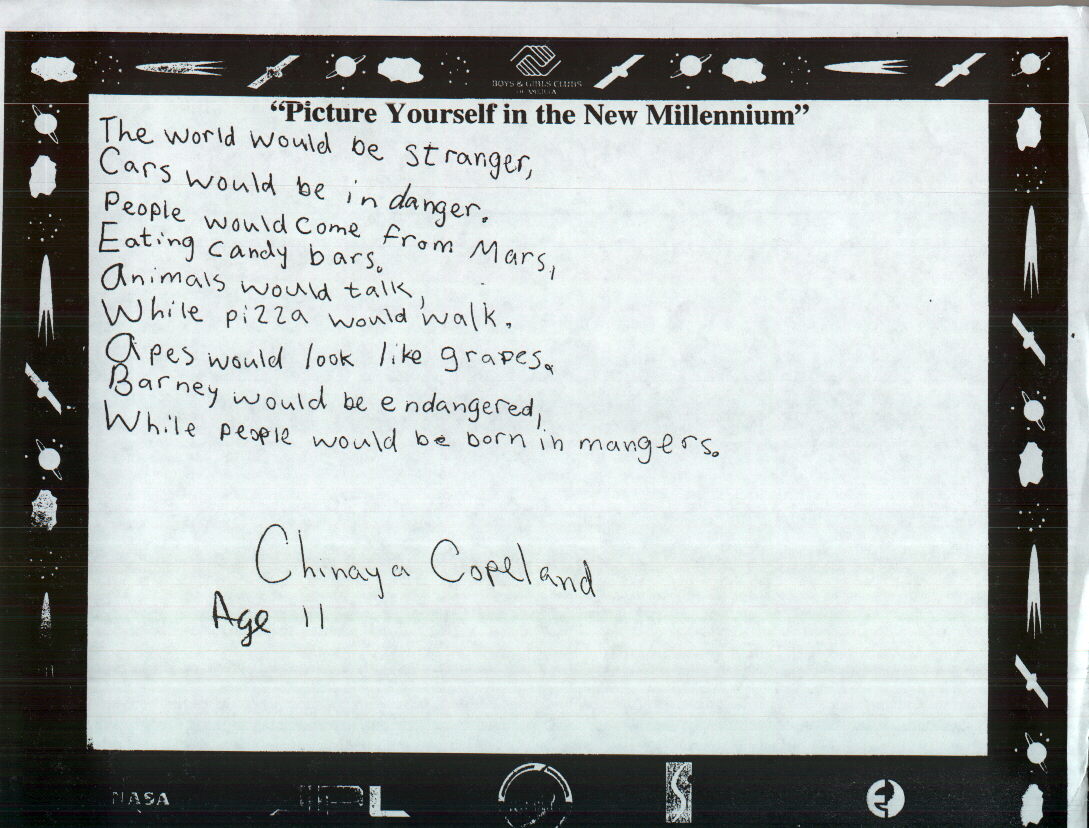 BOYS & GIRLS CLUBS
OF AMERICA
“Picture Yourself in the New Millennium”
The world would be stranger,
Cars would be in danger.
People would come from Mars,
Eating candy bars.
Animals would talk,
While pizza would walk.
Apes would look like grapes.
Barney would be endangered,
While people would be born in mangers.
Chinaya Copeland
Age 11
NASA
JPL